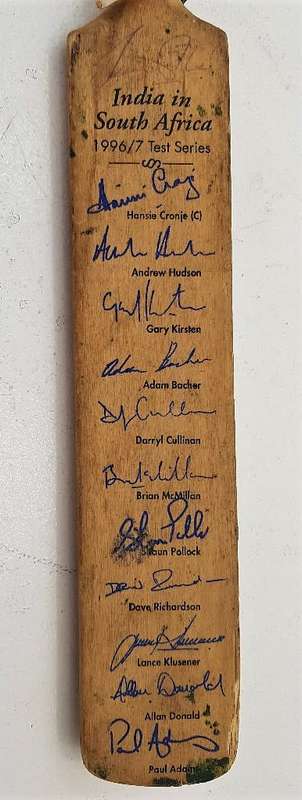 India in
South Africa
1996/7 Test Series
Hansie Cronje (C)
Andrew Hudson
Gary Kirsten
Adam Bacher
Adam Bacher
Darryl Cullinan
Brian McMillan
Shaun Pollock
Dave Richardson
Lance Klusener
Allan Donald
Allan Donald
Paul Adams
Paul Adams